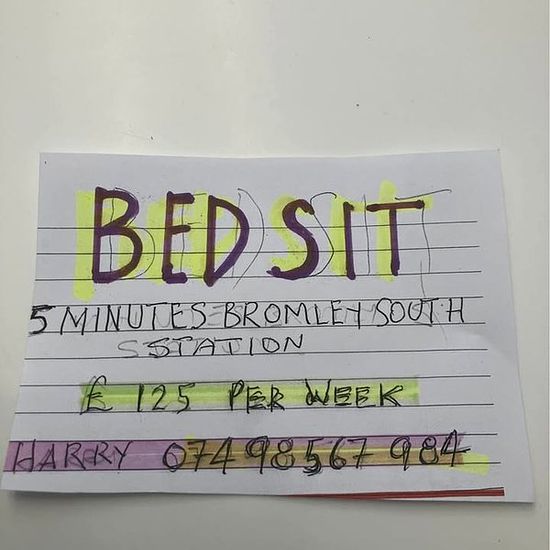 BEDSIT
5 MINUTES BROMLEY SOUTH
STATION
£ 125 PER WEEK
HARRY 07498567 984